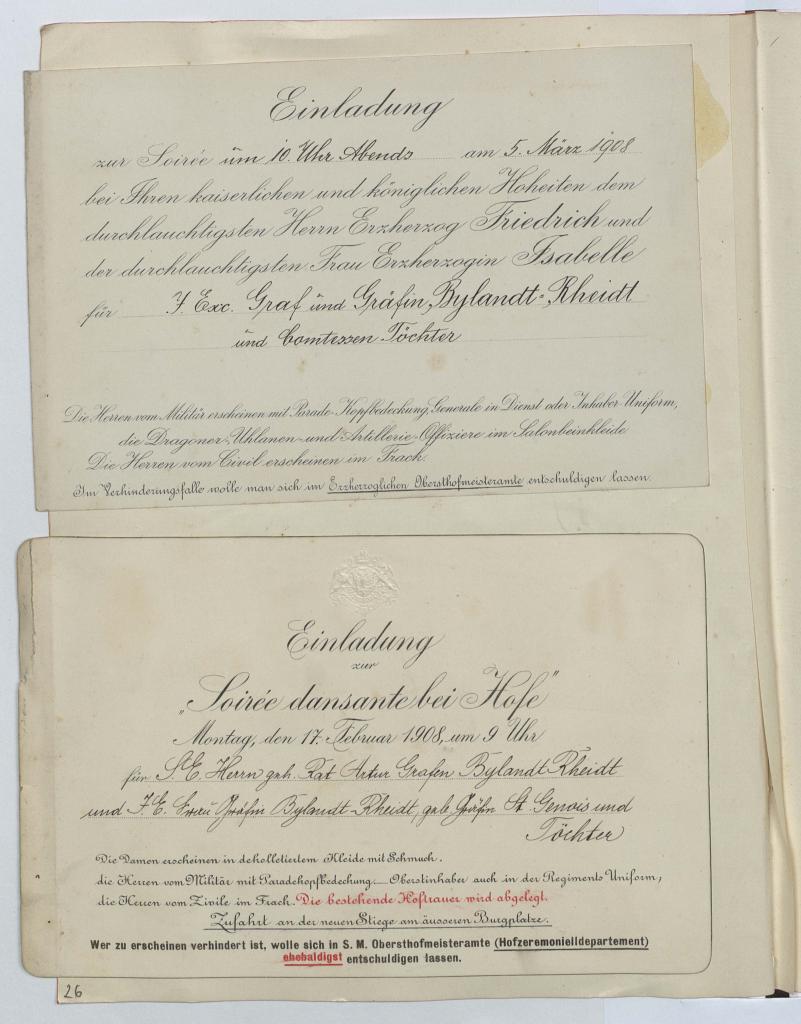 Einladung
zur Soirée um 10. Uhr Abends am 5. März 1908
bei Ihren kaiserlichen und königlichen Hoheiten dem
durchlauchtigsten Herrn Erzherzog Friedrich und
der durchlauchtigsten Frau Erzherzogin Isabelle
für I. Exc. Graf und Gräfin Bylandt-Rheidt
und Comtessen Töchter
Die Herren vom Militär erscheinen mit Parade-Kopfbedeckung, Generale in Dienst oder Inhaber-Uniform,
die Dragoner-, Uhlanen- und Artillerie-Offiziere im Salonbeinkleide
Die Herren vom Civil erscheinen im Frack.
Im Verhinderungsfalle wolle man sich im Erzherzoglichen Obersthofmeisteramte entschuldigen lassen.
Einladung
zur
„Soirée dansante bei Hofe"
Montag, den 17. Februar 1908, um 9 Uhr
für S. E. Herrn geh. Rat Artur Grafen Bylandt-Rheidt
und I. E. Frau Gräfin Bylandt-Rheidt, geb. Gräfin St. Genois und
Töchter
Die Damen erscheinen in dekolletiertem Kleide mit Schmuck.
die Herren vom Militär mit Paradekopfbedeckung.—Oberstinhaber auch in der Regiments Uniform,
die Herren vom Zivile im Frack. Die bestehende Hoftrauer wird abgelegt.
Zufahrt an der neuen Stiege am äusseren Burgplatze.
Wer zu erscheinen verhindert ist, wolle sich in S. M. Obersthofmeisteramte (Hofzeremonielldepartement)
ehebaldigst entschuldigen lassen.
26